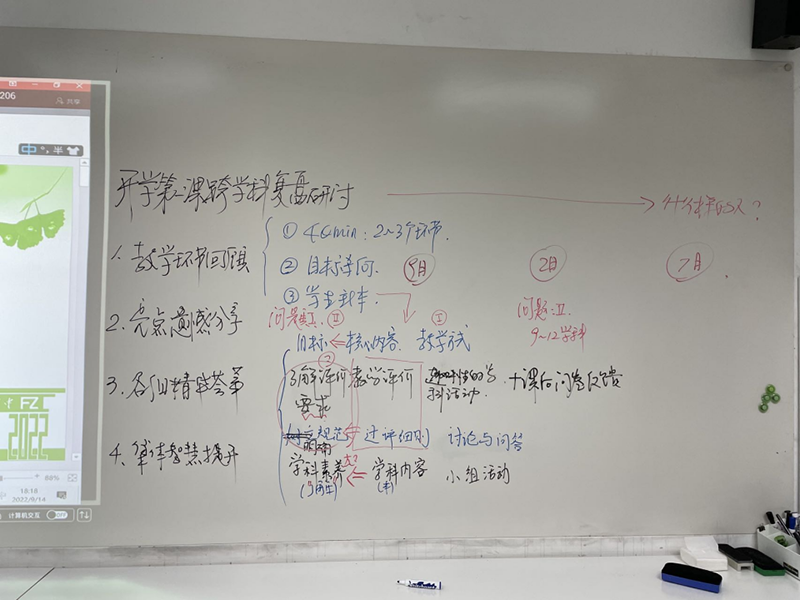 206
共享
中 °, 半
开学第一课跨学科复盘研讨
什么样的人?
1. 教学环节回顾
① 40min: 2~3个环节.
② 目标导向.
③ 学生到本:
9月
2月
7月
2. 亮点
分享
问题Ⅰ. Ⅱ
①
问题: Ⅱ.
9~12学科
目标 ← 核心内容. 教学方式
3. 各
精彩荟萃
②
了解评价
要求
教学评价
科活动.
+课后问卷反馈
明确
规范
过评细则
讨论与问答
4. 集体智慧提升
学科素养
大?
学科内容
小组活动
(了解)
(本)
FZ
2022
88%
18:18
2022/9/14
计算机交互
OFF